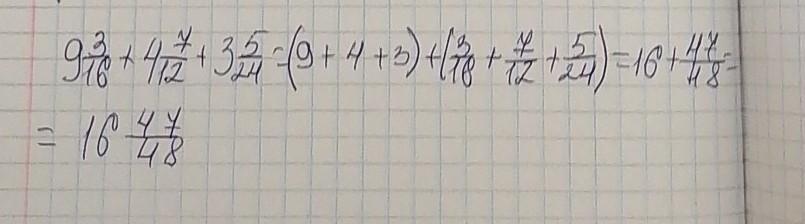 9 3/16 + 4 7/12 + 3 5/24 = (9 + 4 + 3) + (3/16 + 7/12 + 5/24) = 16 + 47/48 =
= 16 47/48